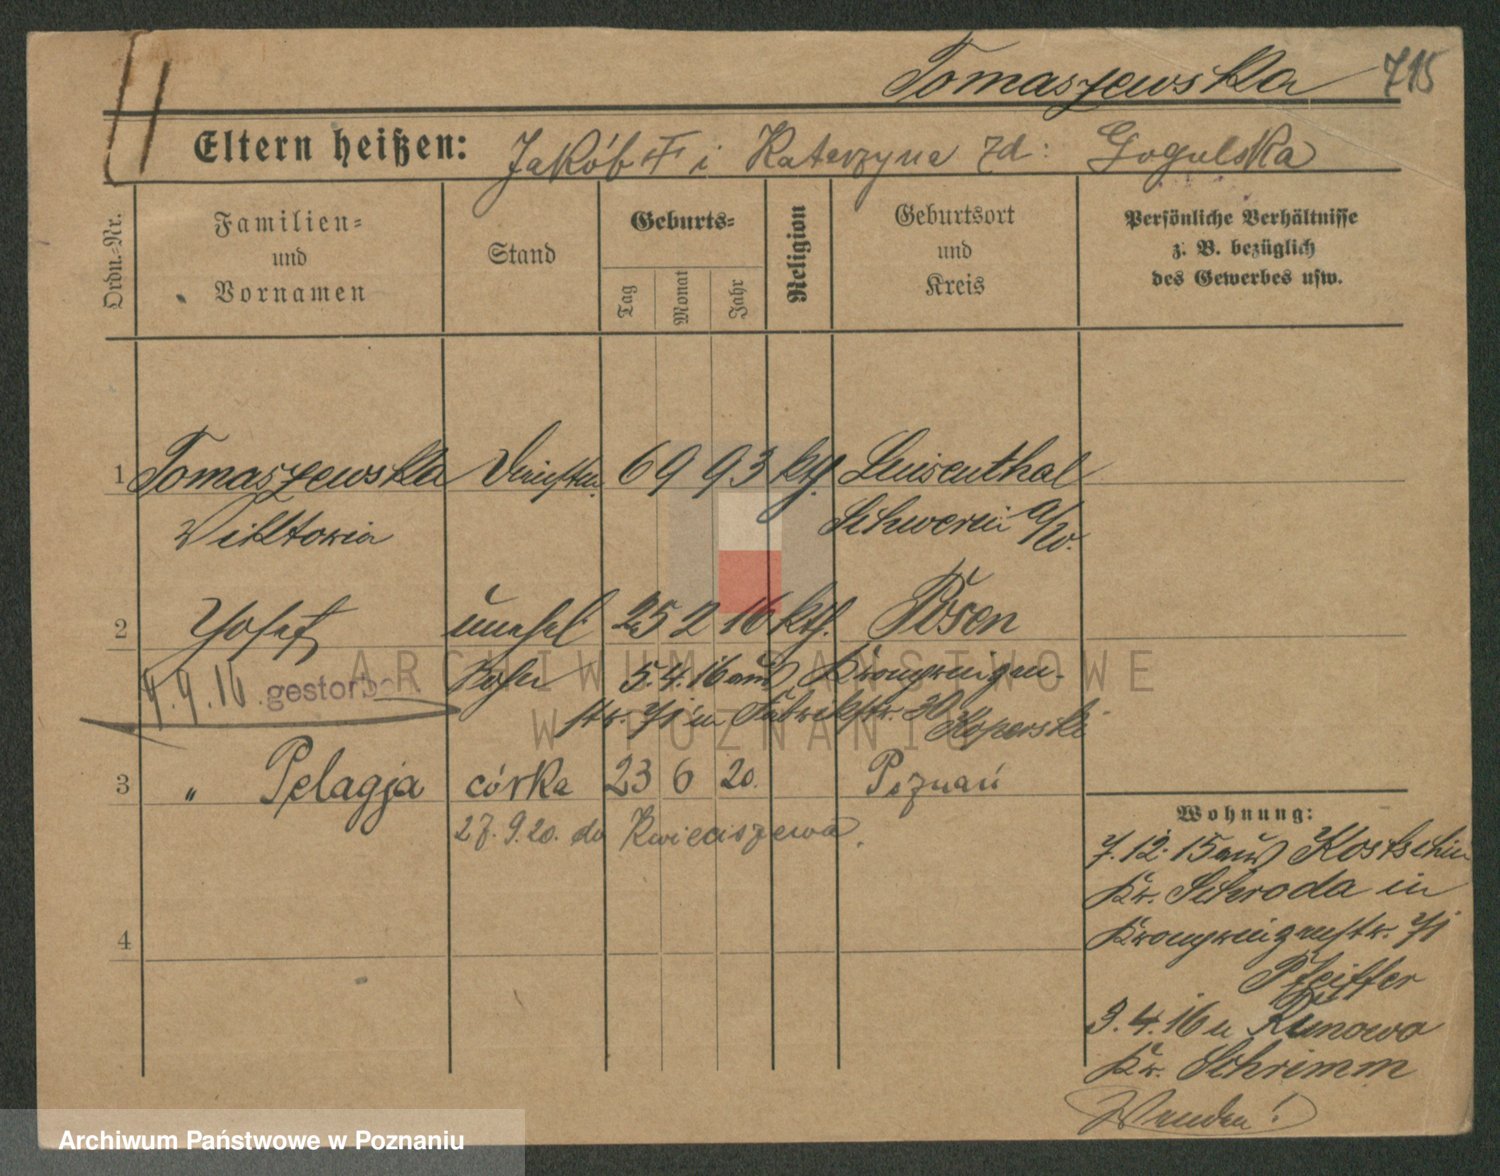 Tomaszewska 715
Eltern heißen: Jakób i Katarzyna zd: Gogulska
Ordn.-Nr.
Familien-
und
Vornamen
Stand
Geburts-
Tag
Monat
Jahr
Religion
Geburtsort
und
Kreis
Persönliche Verhältnisse
z. B. bezüglich
des Gewerbes usw.
1 Tomaszewska 6 9 93 kth Luisenthal
Viktoria Schwerin a/W.
2 Josef unehel. 25 2 16 kth. Posen
4.9.16 gestorben Sohn 5.4.16 aus Kronprinzen-
str. in Fabrikstr. 30 Koperski
3 " Pelagja córka 23 6 20. Poznań
27.9.20. do Kwieciszewa.
4
Wohnung:
7.12.15 aus Kostschin
Kr. Schroda in
Kronprinzenstr.
Pfeiffer
3.4.16 n Kunowo
Kr. Schrimm
Wenden!
ARCHIWUM PAŃSTWOWE
W POZNANIU
Archiwum Państwowe w Poznaniu